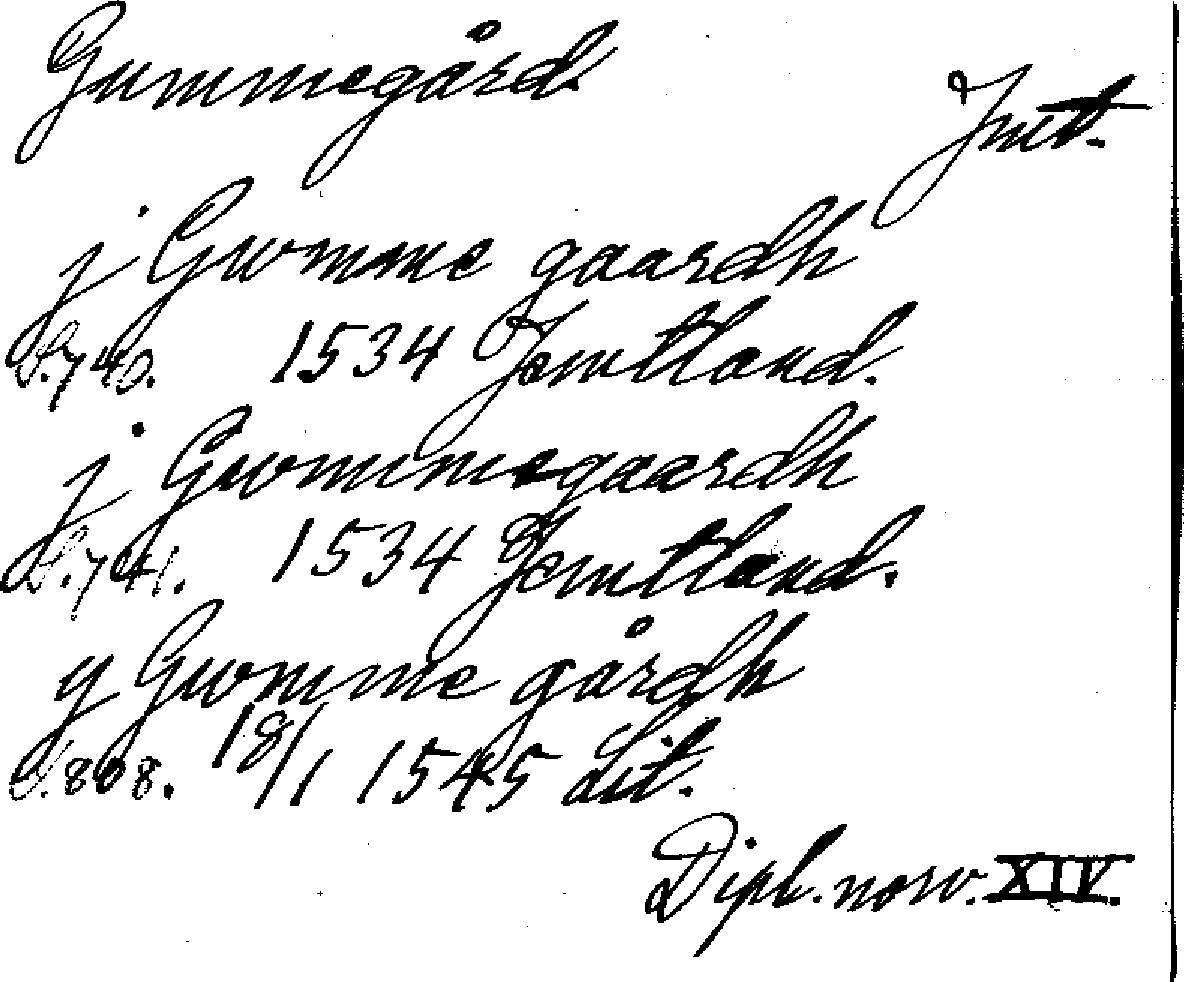 Gummegård
Jmt.
j Gwomme gaardh
S. 740. 1534 Jemtland.
j Gwommegaardh
S. 741. 1534 Jemtland.
y Gwomme gårdh
S. 808. 18/1 1545 Lit.
Dipl. norv. XIV.